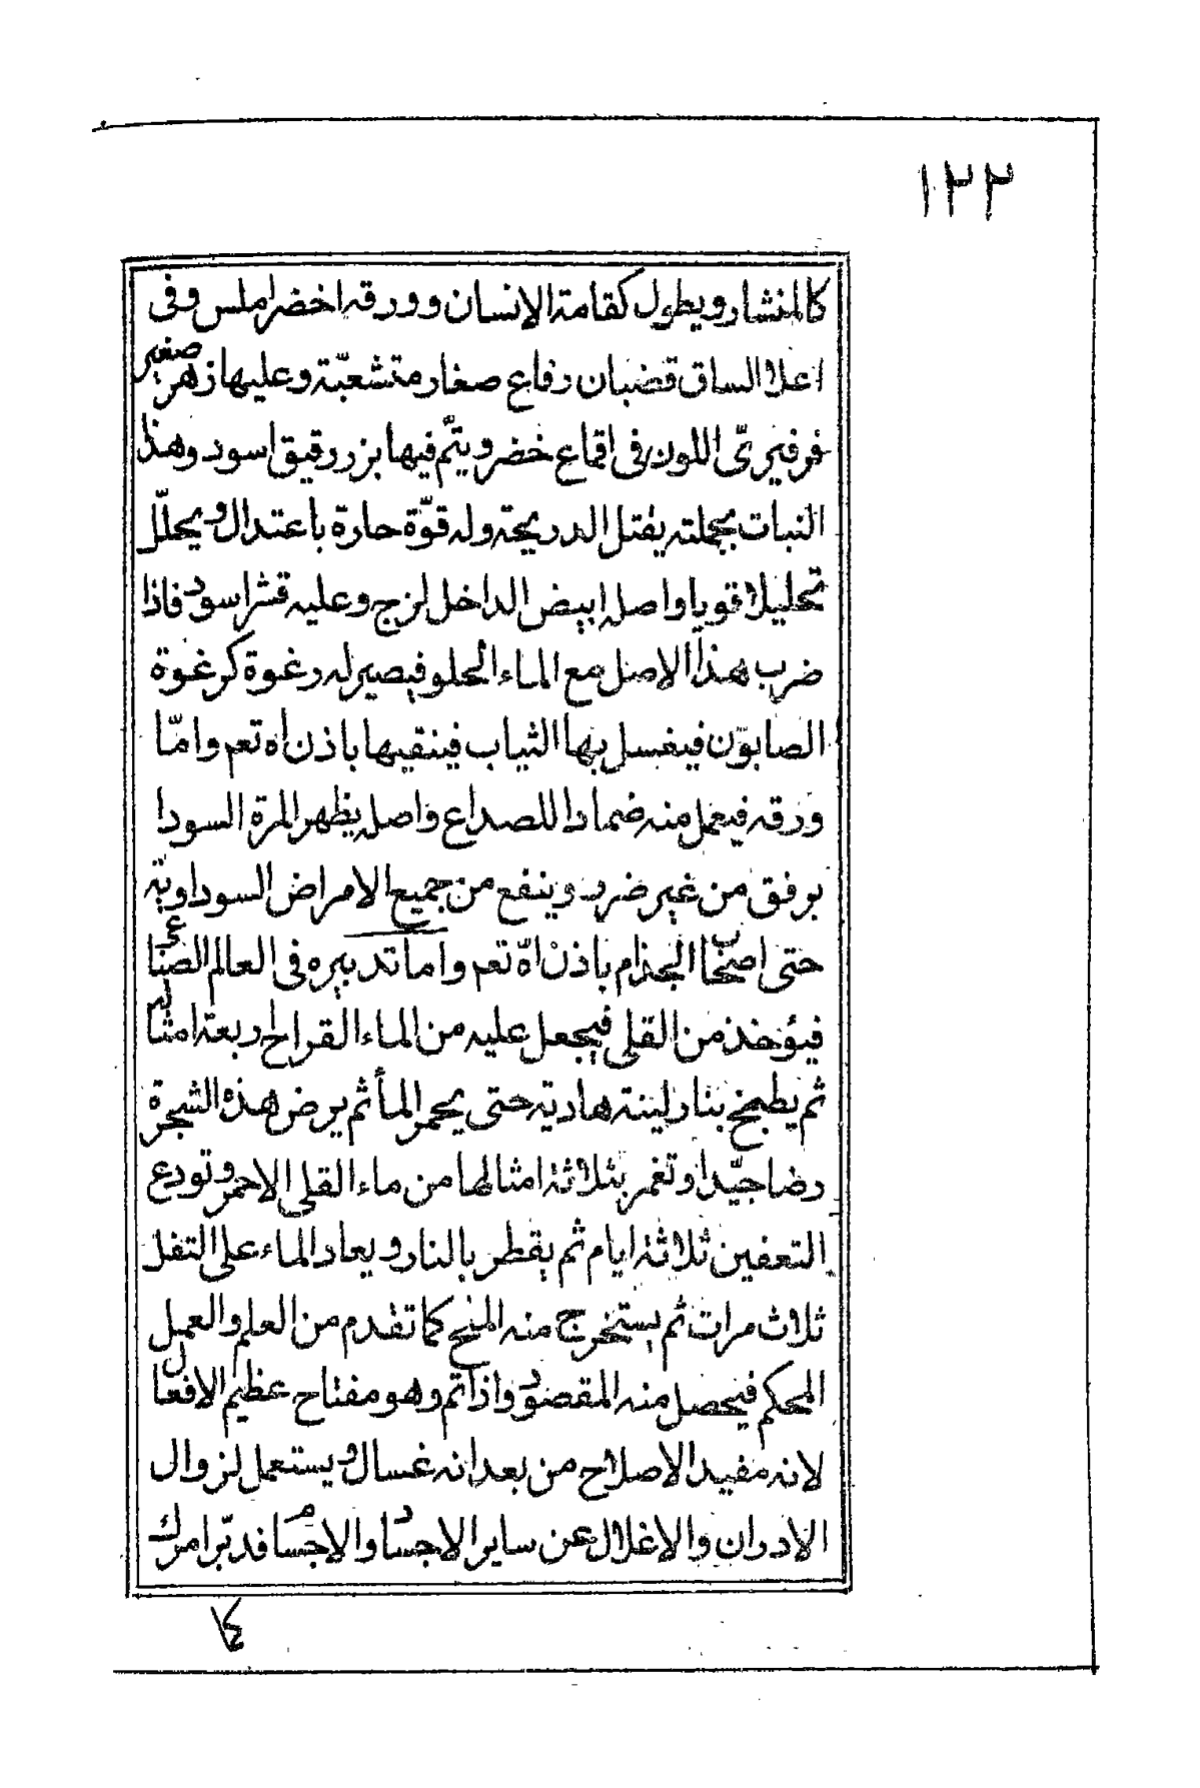 ١٢٢
كالمنشار ويطول كقامة الإنسان وورقه اخضر املس وفى
اعلا الساق قضبان رقاع صغار متشعبّة وعليها زهر صغير
فرفيرىّ اللون فى اقماع خضر ويتمّ فيها بزر رقيق اسود وهذا
النبات بجملته يقتل الدريحة وله قوّة حارة باعتدال ويحللّ
تحليلا قويا واصله ابيض الداخل لزج وعليه قشر اسود فاذا
ضرب هذا الاصل مع الماء الحلو فيصير له رغوة كرغوة
الصابوّن فيغسل بها الثياب فينقيها باذن اه تعم وامّا
ورقه فيعمل منه ضمادا للصداع واصله يظهر المرة السودا
برفق من غير ضرر وينفع من جميع الامراض السوداويّة
حتى اصحاب الجذام باذن اهّ تعم واما تدبيره فى العالم الصناعى
فيؤخذ من القلى فيجعل عليه من الماء القراح اربعة امثاله
ثم يطبخ بنار لينة هادية حتى يحمر المأ ثم يرض هذه الشجرة
رضا جيّدا وتغمر بثلاثة امثالها من ماء القلى الاحمر وتودع
التعفين ثلاثة ايام ثم يقطر بالنار ويعاد الماء على التفل
ثلاث مرات ثم يستخرج منه الملح كما تقدم من العلم والعمل
المحكم فيحصل منه المقصود واذا تم وهو مفتاح عظيم الافعال
لانه مفيد الاصلاح من بعد انه غسال ويستعمل لزوال
الادران والاغلال عن ساير الاجساد والاجسام فدبّر امرك
كا